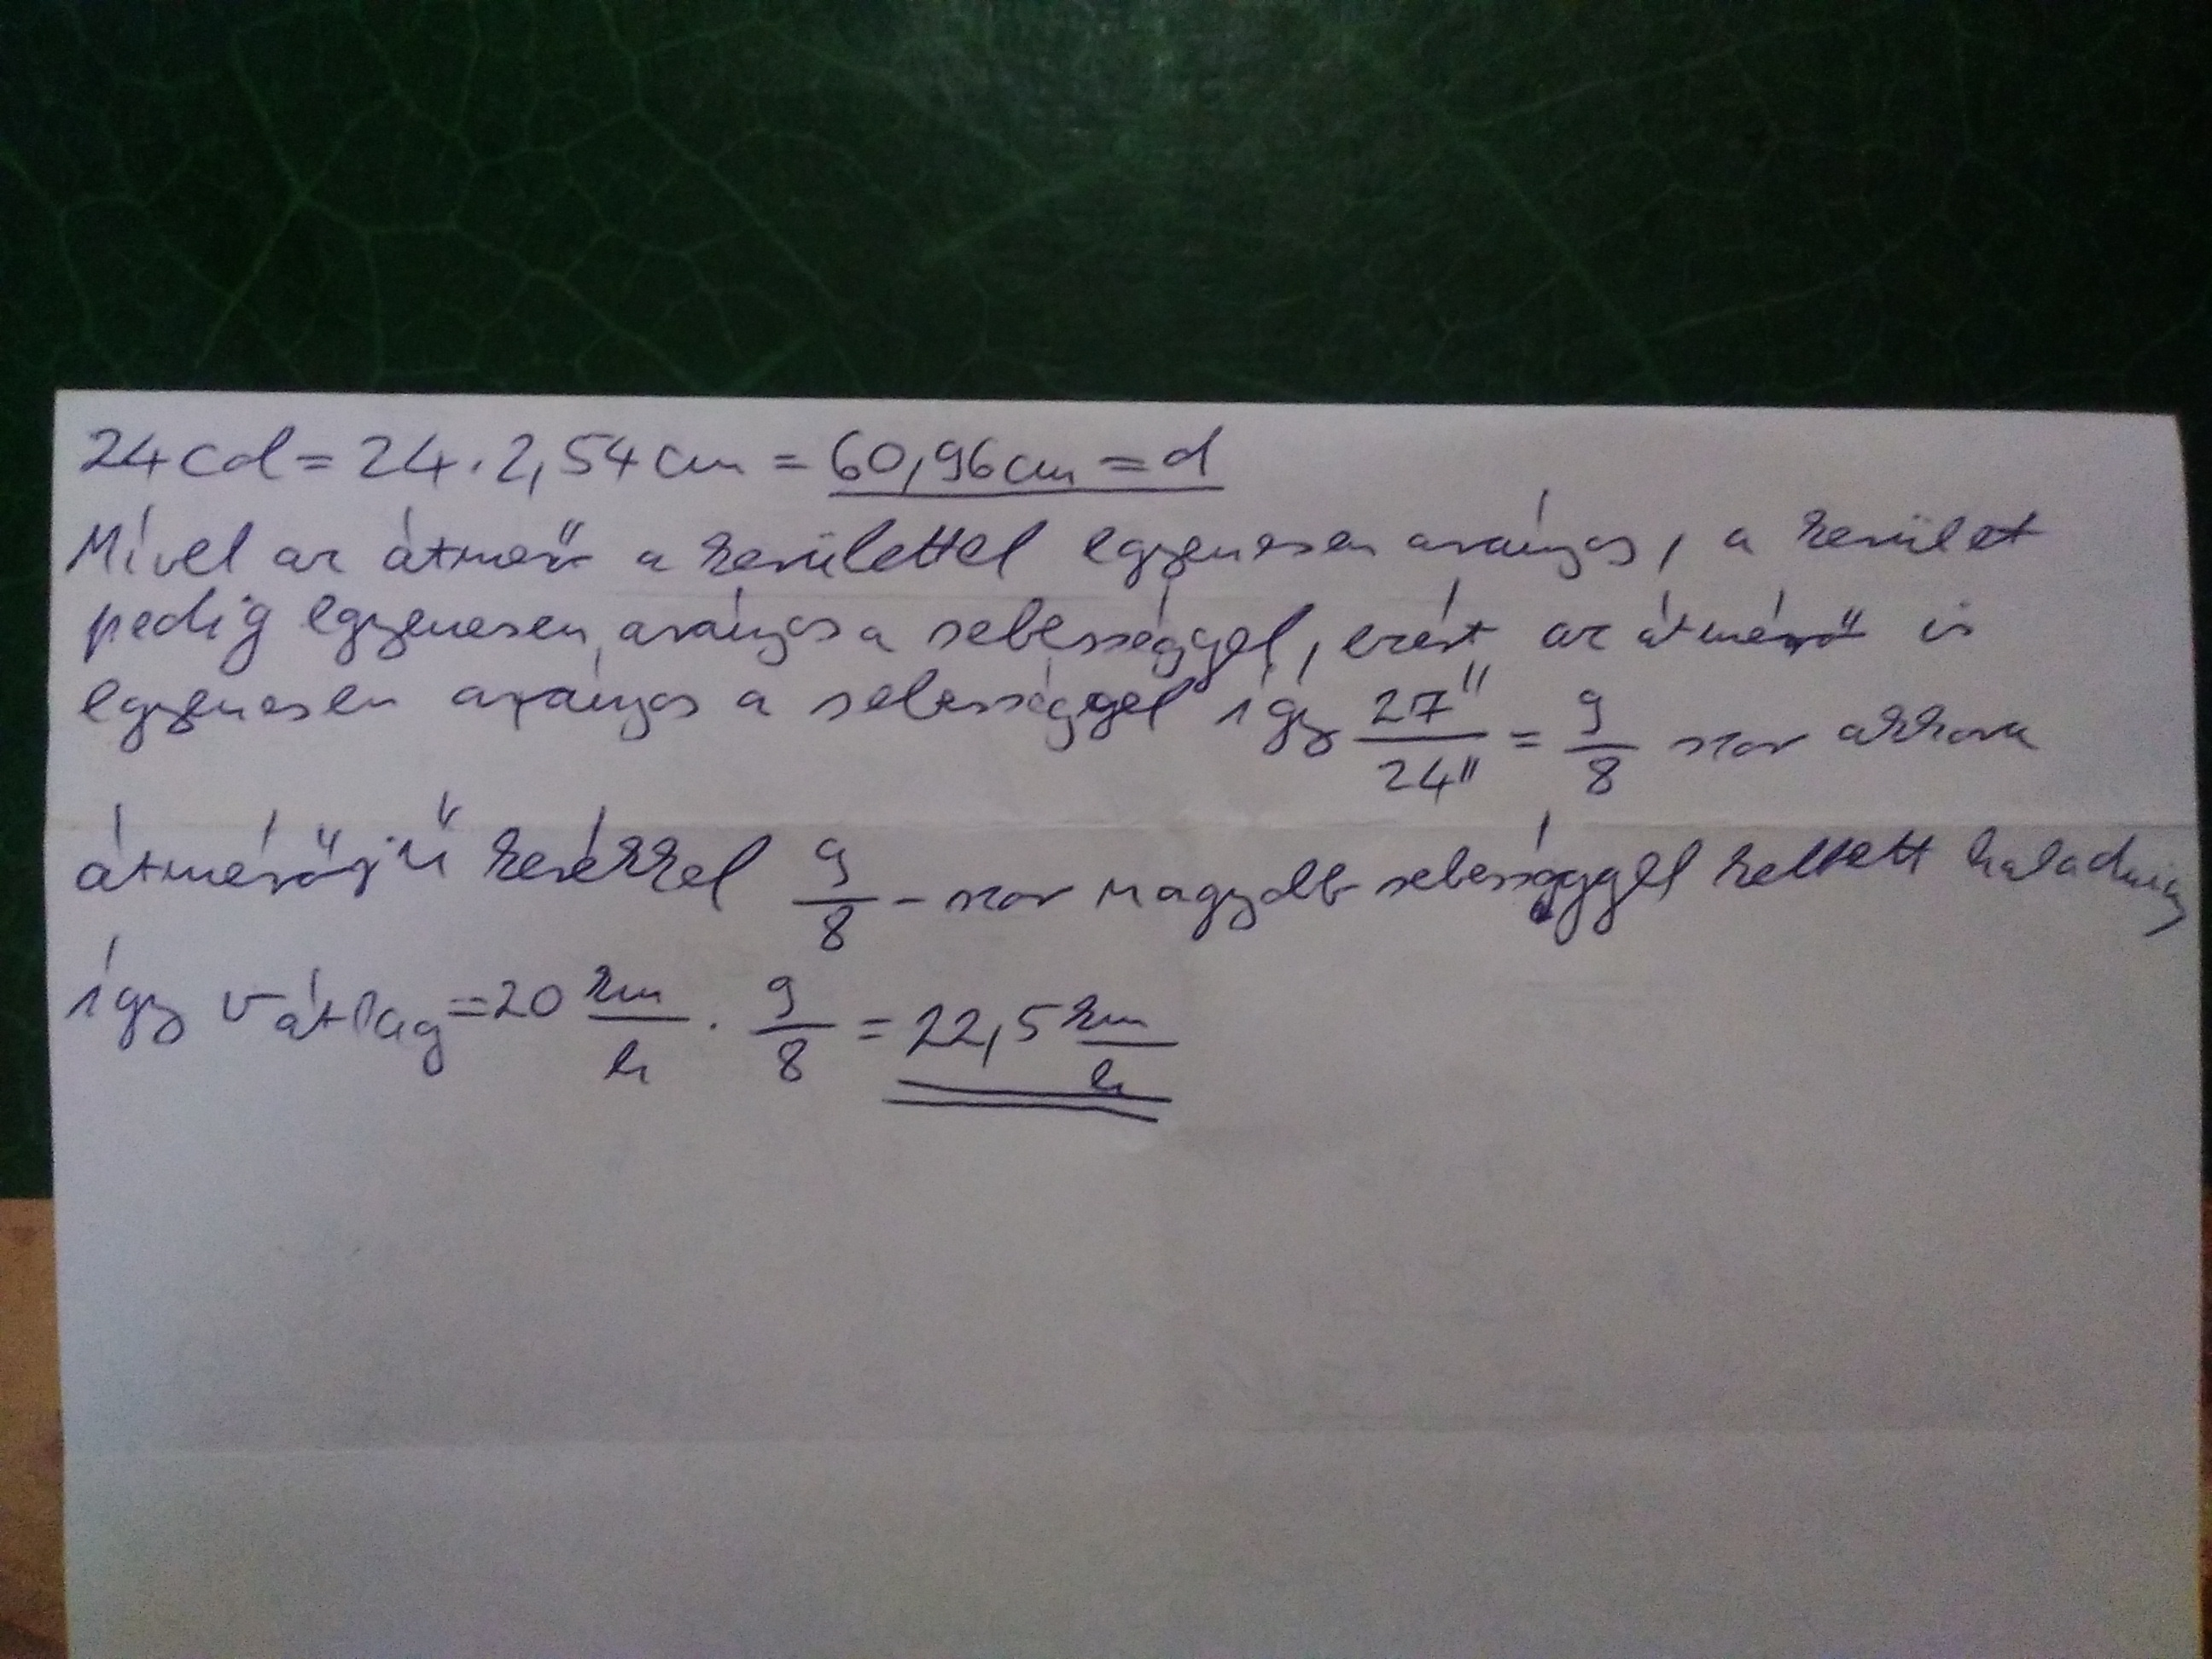 24 col = 24 · 2,54 cm = 60,96 cm = d
Mível az átmérő a kerülettel egyenesen arányos, a kerület
pedig egyenesen arányos a sebességgel, ezért az átmérő is
egyenesen arányos a sebességgel így 27"/24" = 9/8 szor akkora
átmérőjű kerékkel 9/8 - szor nagyobb sebességgel kellett haladnia
így v átlag = 20 km/h · 9/8 = 22,5 km/h